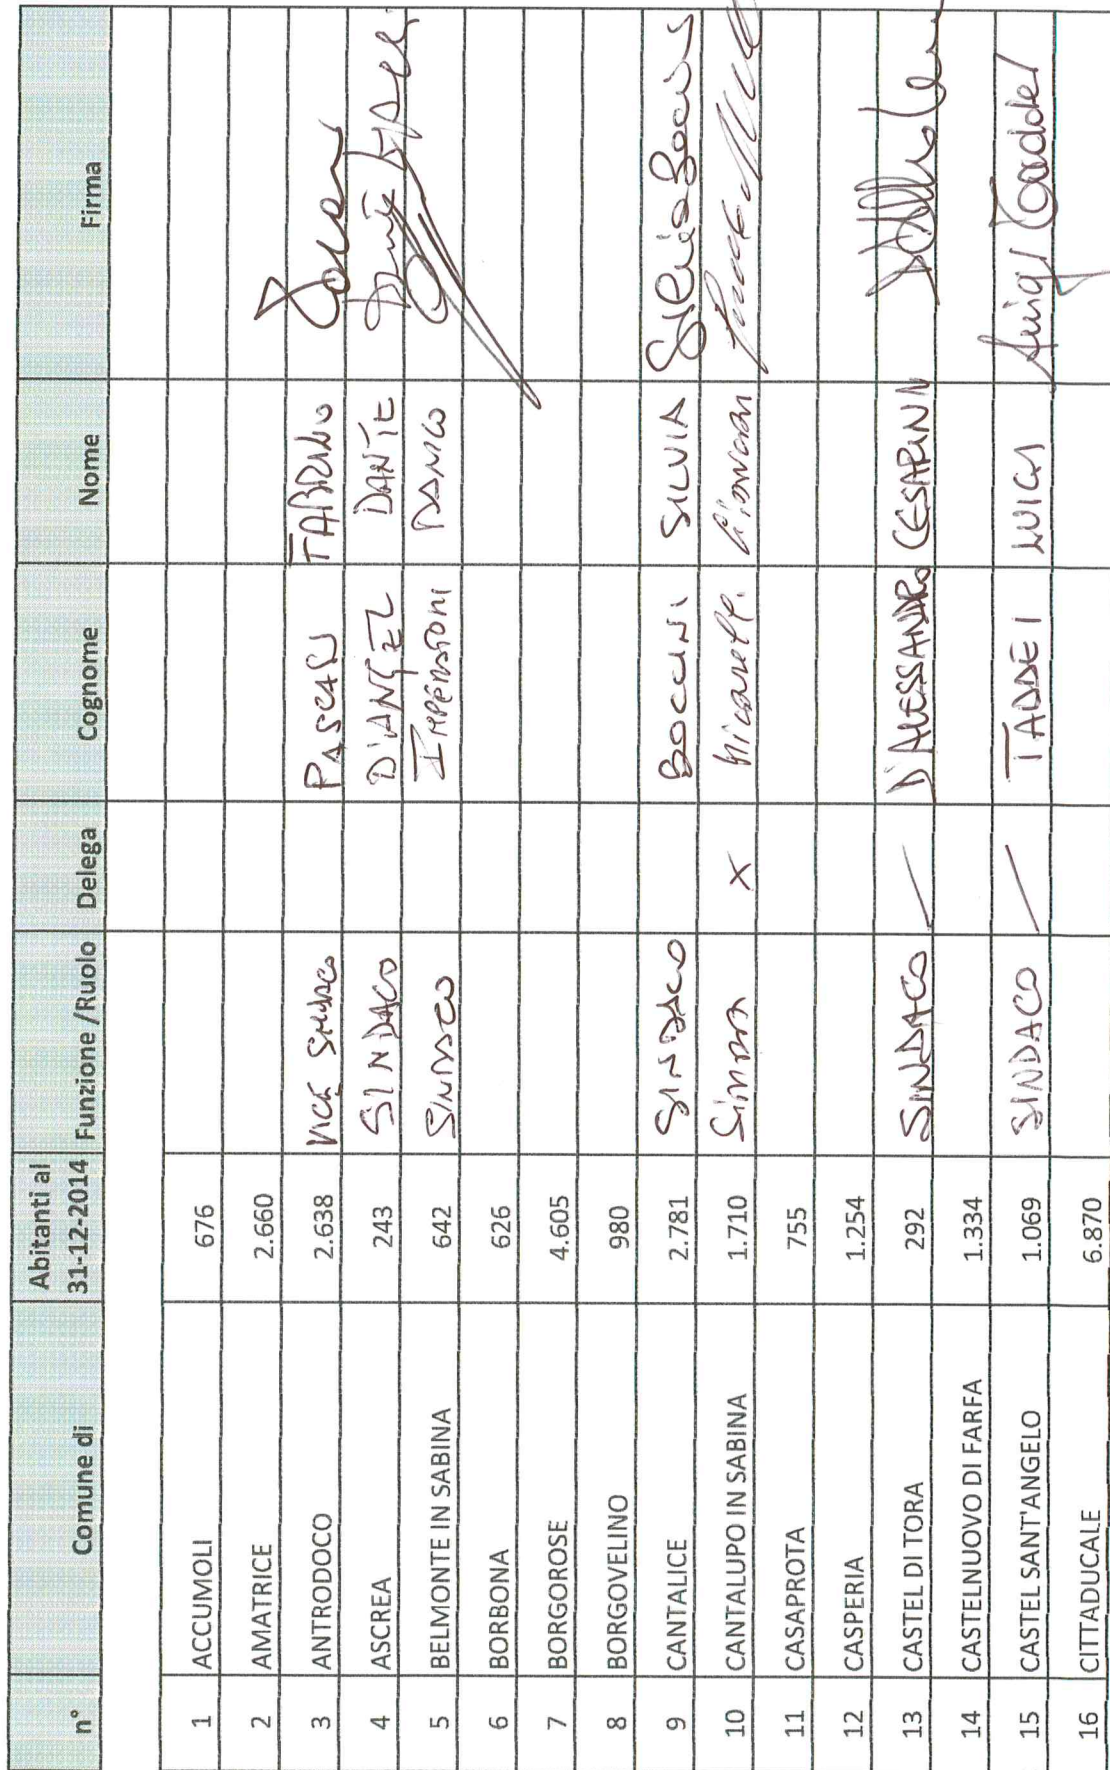 n° Comune di Abitanti al 31-12-2014 Funzione /Ruolo Delega Cognome Nome Firma
1 ACCUMOLI 676
2 AMATRICE 2.660
3 ANTRODOCO 2.638 VICE SINDACO
4 ASCREA 243 SINDACO D'ANGEL DANTE
5 BELMONTE IN SABINA 642 SINDACO IMPERATORI DANILO
6 BORBONA 626
7 BORGOROSE 4.605
8 BORGOVELINO 980
9 CANTALICE 2.781 SINDACO BOCCINI SILVIA Silvia Boccini
10 CANTALUPO IN SABINA 1.710 X
11 CASAPROTA 755
12 CASPERIA 1.254
13 CASTEL DI TORA 292 SINDACO — D'ALESSANDRO CESARINA
14 CASTELNUOVO DI FARFA 1.334
15 CASTEL SANT'ANGELO 1.069 SINDACO — TADDEI LUIGI Luigi Taddei
16 CITTADUCALE 6.870